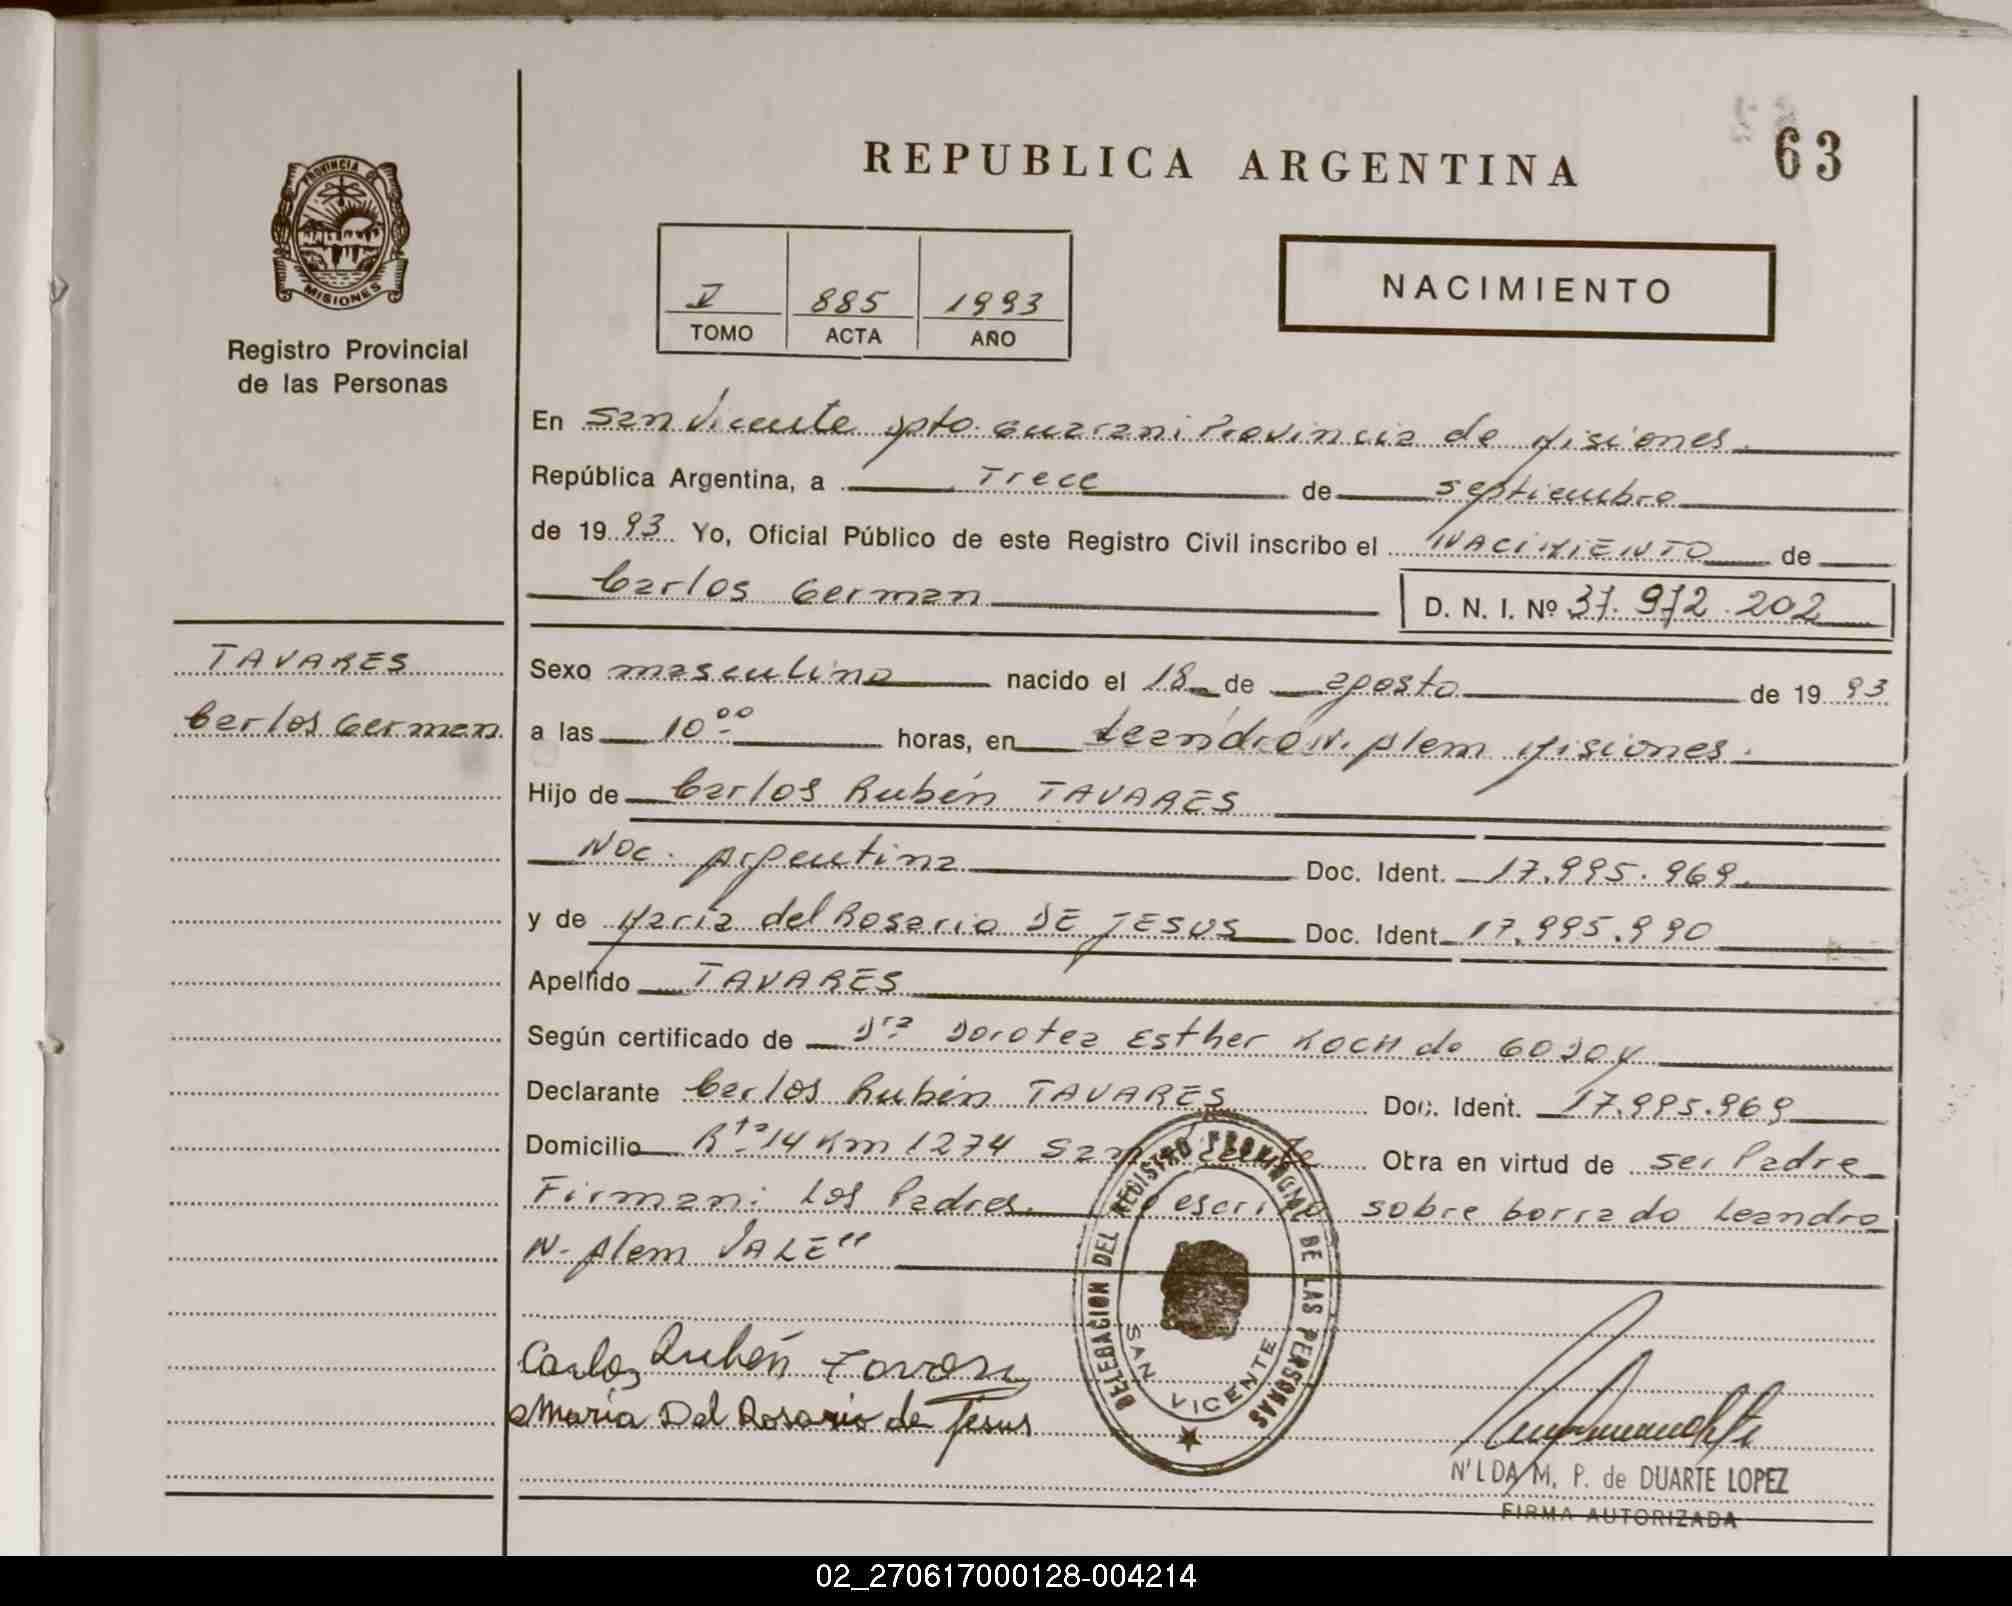 63
REPUBLICA ARGENTINA
PROVINCIA DE
MISIONES
Registro Provincial
de las Personas
V 885 1993
TOMO ACTA AÑO
NACIMIENTO
En San Vicente Dpto. Guarani Provincia de Misiones.
República Argentina, a Trece de septiembre
de 1993 Yo, Oficial Público de este Registro Civil inscribo el NACIMIENTO de
Carlos German D. N. I. Nº 37.972.202
TAVARES
Carlos German
Sexo masculino nacido el 18 de agosto de 1993
a las 10 00 horas, en Leandro N. Alem Misiones.
Hijo de Carlos Rubén TAVARES
Nac. Argentina Doc. Ident. 17.995.969.
y de Maria del Rosario DE JESUS Doc. Ident. 17.995.990
Apellido TAVARES
Según certificado de Dra Dorotea Esther KOCH de GODOY
Declarante Carlos Rubén TAVARES Doc. Ident. 17.995.969
Domicilio Rta 14 Km 1274 San Vicente Obra en virtud de ser Padre
Firman: Los Padres. Lo escrito sobre borrado Leandro
N. Alem VALE"
Carlos Rubén Tavares
Maria Del Rosario de Jesus
DELEGACION DEL REGISTRO PROVINCIAL DE LAS PERSONAS
SAN VICENTE
NILDA M. P. de DUARTE LOPEZ
FIRMA AUTORIZADA
02_270617000128-004214